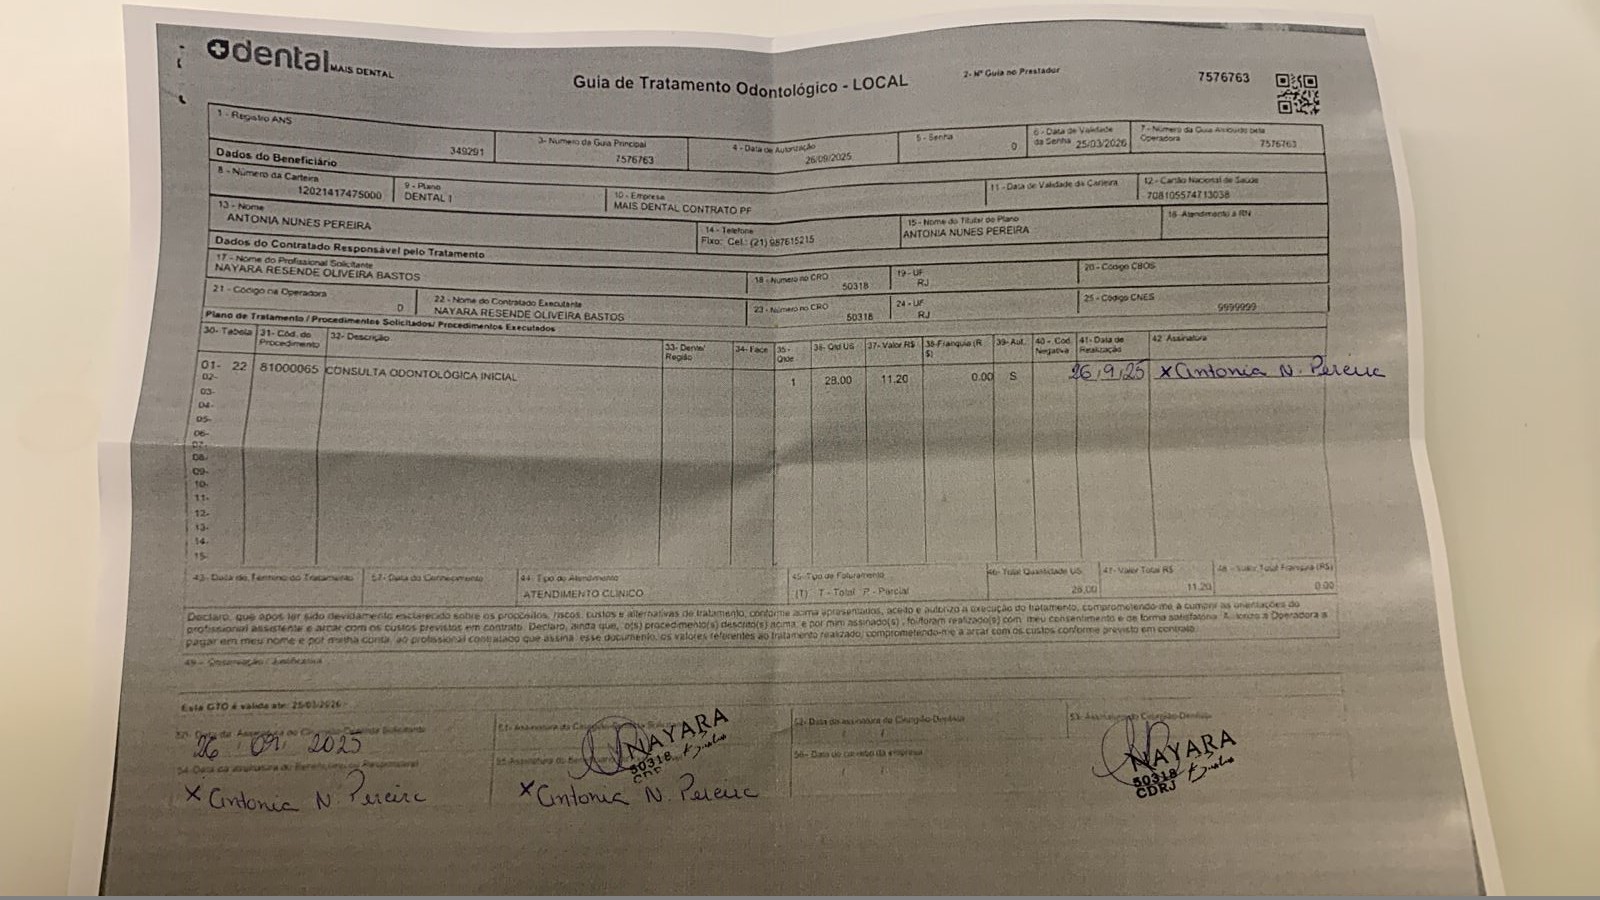 dental MAIS DENTAL
Guia de Tratamento Odontológico - LOCAL
2- Nº Guia no Prestador
7576763
1 - Registro ANS
349291
3- Número da Guia Principal
7576763
4 - Data de Autorização
26/09/2025
5 - Senha
0
6 - Data de Validade da Senha 25/03/2026
7 - Número da Guia Atribuído pela Operadora
7576763
Dados do Beneficiário
8 - Número da Carteira
12021417475000
9 - Plano
DENTAL I
10 - Empresa
MAIS DENTAL CONTRATO PF
11 - Data de Validade da Carteira
12 - Cartão Nacional de Saúde
708105574713038
13 - Nome
ANTONIA NUNES PEREIRA
14 - Telefone
Fixo: Cel.: (21) 987615215
15 - Nome do Titular do Plano
ANTONIA NUNES PEREIRA
16 - Atendimento a RN
Dados do Contratado Responsável pelo Tratamento
17 - Nome do Profissional Solicitante
NAYARA RESENDE OLIVEIRA BASTOS
18 - Número no CRO
50318
19 - UF
RJ
20 - Código CBOS
21 - Código na Operadora
0
22 - Nome do Contratado Executante
NAYARA RESENDE OLIVEIRA BASTOS
23 - Número no CRO
50318
24 - UF
RJ
25 - Código CNES
9999999
Plano de Tratamento / Procedimentos Solicitados/ Procedimentos Executados
30- Tabela 31- Cód. do Procedimento 32- Descrição 33- Dente/ Região 34- Face 35- Qtde 36- Qtd US 37- Valor R$ 38-Franquia (R$) 39- Aut. 40 - Cod Negativa 41- Data de Realização 42 Assinatura
01- 22 81000065 CONSULTA ODONTOLÓGICA INICIAL 1 28.00 11.20 0.00 S 26/9/25 x Antonia N. Pereira
02-
03-
04-
05-
06-
07-
08-
09-
10-
11-
12-
13-
14-
15-
43- Data do Término do Tratamento
44- Tipo de Atendimento
ATENDIMENTO CLÍNICO
45-Tipo de Faturamento
(T) T - Total P - Parcial
46- Total Quantidade US
28,00
47- Valor Total R$
11,20
48 - Valor Total Franquia (R$)
0.00
Declaro, que após ter sido devidamente esclarecido sobre os propósitos, riscos, custos e alternativas de tratamento, conforme acima apresentados, aceito e autorizo a execução do tratamento, comprometendo-me a cumprir as orientações do
profissional assistente e arcar com os custos previstos em contrato. Declaro, ainda que, o(s) procedimento(s) descrito(s) acima, e por mim assinado(s), foi/foram realizado(s) com meu consentimento e de forma satisfatória. Autorizo a Operadora a
pagar em meu nome e por minha conta, ao profissional contratado que assina esse documento, os valores referentes ao tratamento realizado, comprometendo-me a arcar com os custos conforme previsto em contrato.
49 - Observação / Justificativa
Esta GTO é válida até: 25/03/2026
26 09 2025
NAYARA
50318
52- Data da assinatura do Cirurgião-Dentista
/ /
53- Assinatura do Cirurgião-Dentista
NAYARA
50318
CDRJ
54-Data da assinatura do Beneficiário ou Responsável
x Antonia N. Pereira
x Antonia N. Pereira
56- Data do carimbo da empresa
/ /